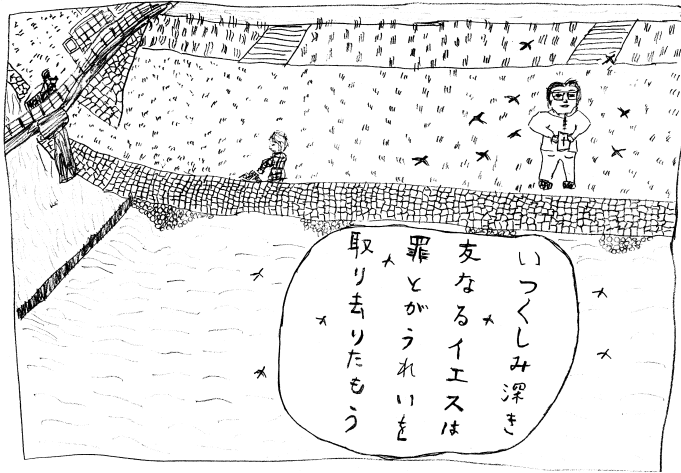 いつくしみ深き
友なるイエスは
罪とがうれいを
取り去りたもう